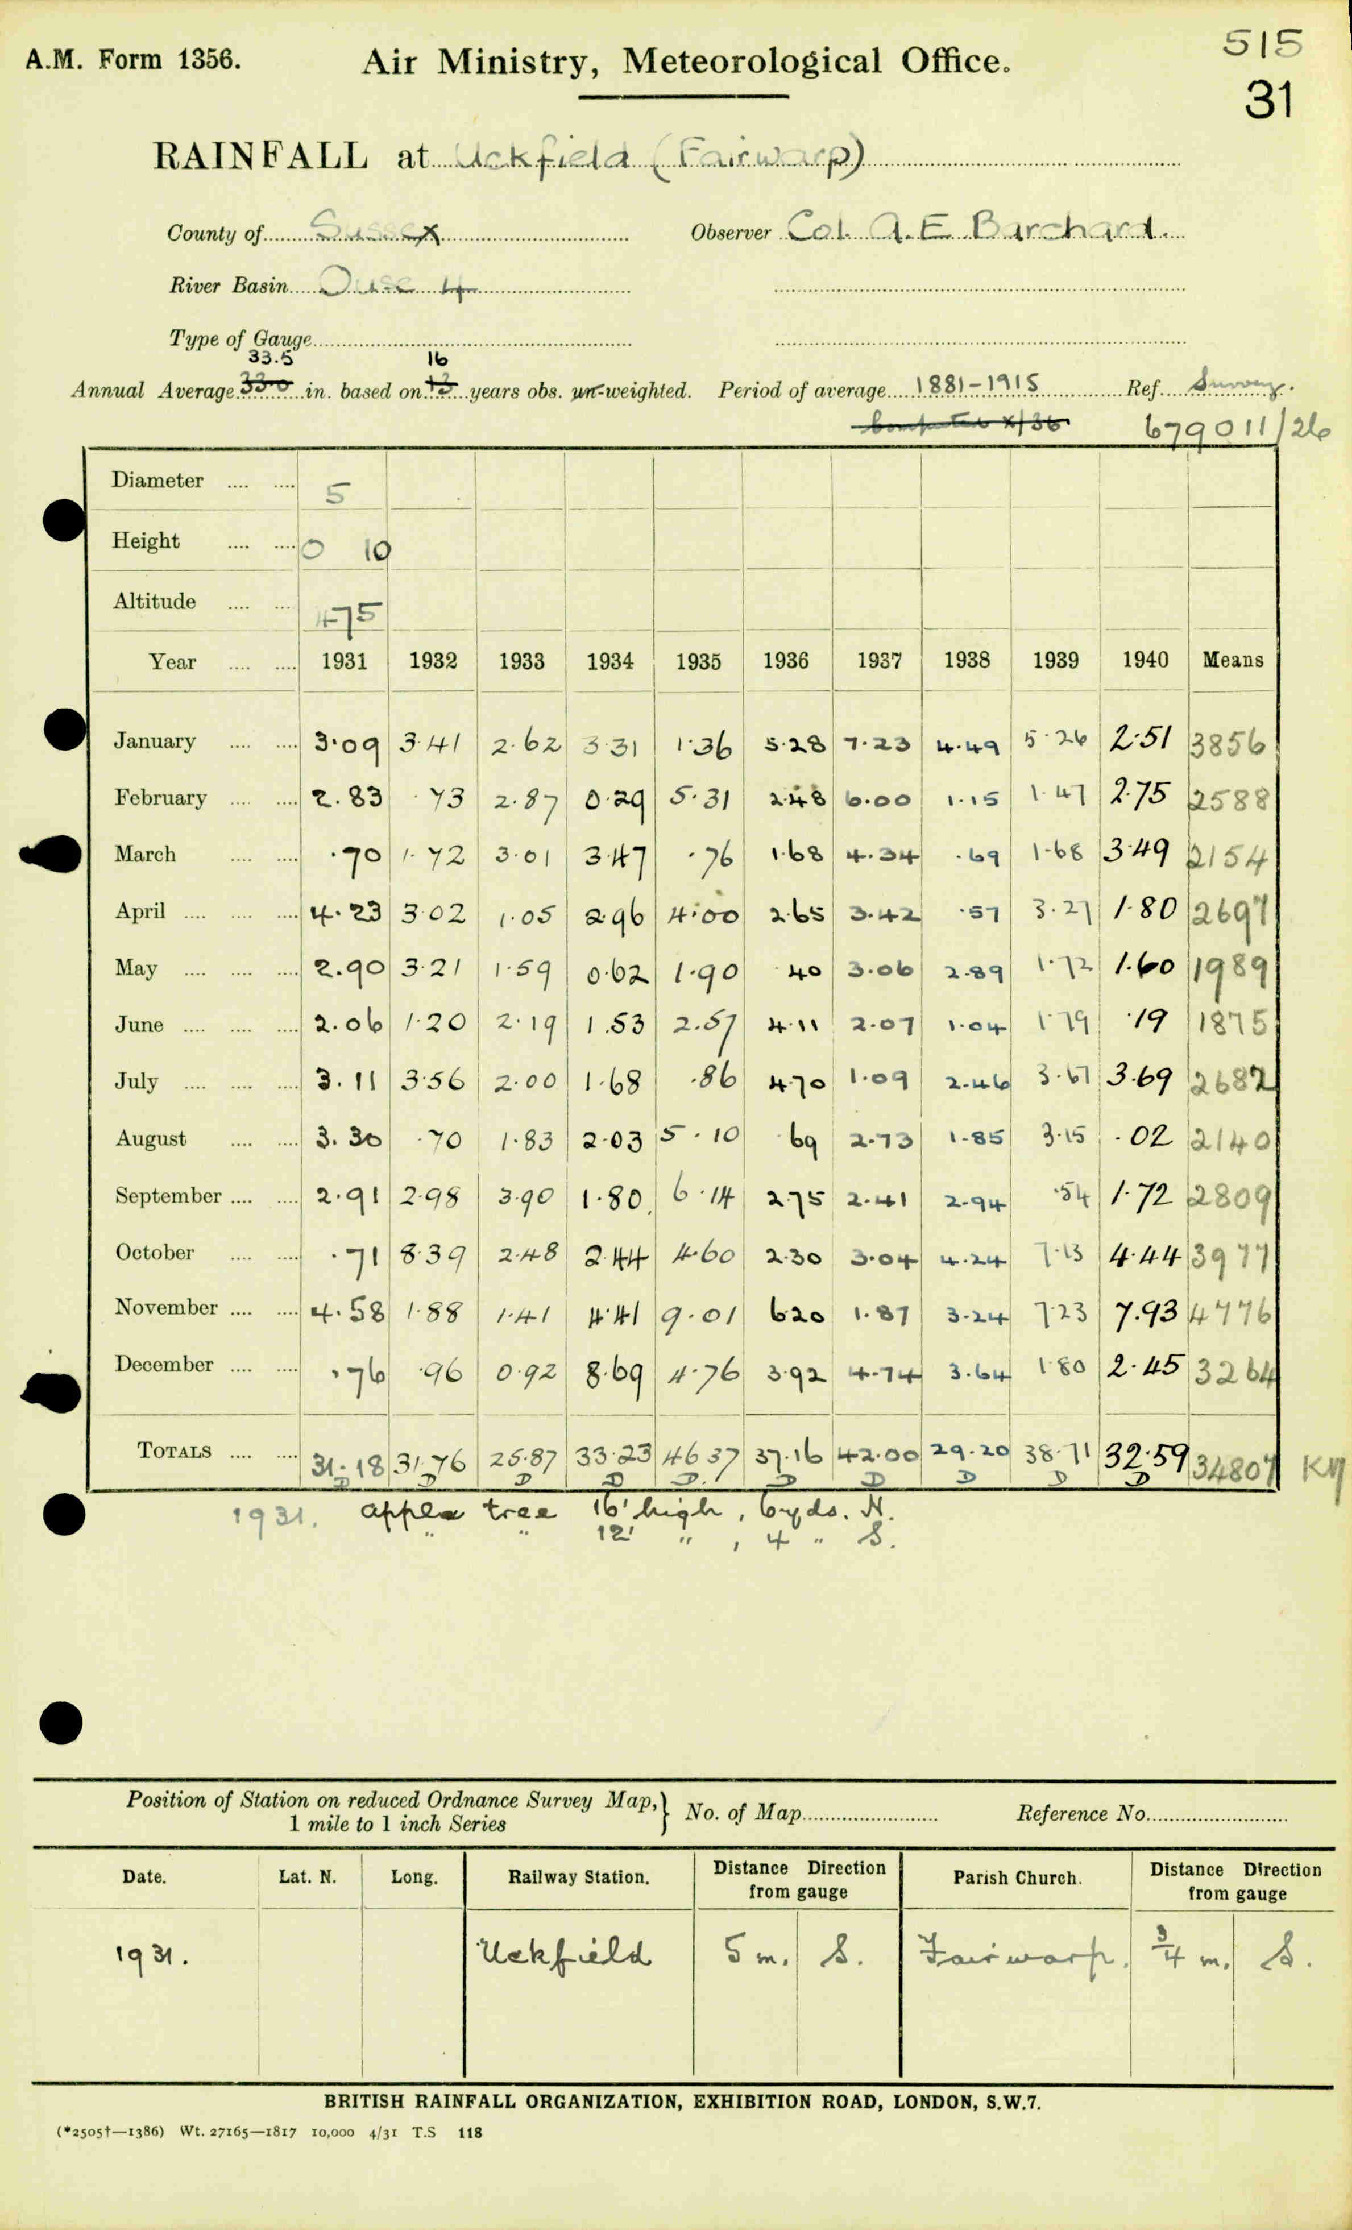 A.M. Form 1356.
Air Ministry, Meteorological Office.
515
31
RAINFALL at Uckfield (Fairwarp)
County of Sussex Observer Col. A.E Barchard.
River Basin Ouse 4
Type of Gauge
33.5 16
Annual Average 33.0 in. based on 13 years obs. un-weighted. Period of average 1881-1915 Ref. Survey.
679011/26
Diameter 5
Height 0 10
Altitude 475
Year 1931 1932 1933 1934 1935 1936 1937 1938 1939 1940 Means
January 3.09 3.41 2.62 3.31 1.36 5.28 7.23 4.49 5.26 2.51 3856
February 2.83 .73 2.87 0.29 5.31 2.48 6.00 1.15 1.47 2.75 2588
March .70 1.72 3.01 3.47 .76 1.68 4.34 .69 1.68 3.49 2154
April 4.23 3.02 1.05 2.96 4.00 2.65 3.42 .57 3.27 1.80 2697
May 2.90 3.21 1.59 0.62 1.90 .40 3.06 2.89 1.72 1.60 1989
June 2.06 1.20 2.19 1.53 2.57 4.11 2.07 1.04 1.79 .19 1875
July 3.11 3.56 2.00 1.68 .86 4.70 1.09 2.46 3.67 3.69 2682
August 3.30 .70 1.83 2.03 5.10 .69 2.73 1.85 3.15 .02 2140
September 2.91 2.98 3.90 1.80 6.14 2.75 2.41 2.94 .54 1.72 2809
October .71 8.39 2.48 2.44 4.60 2.30 3.04 4.24 7.13 4.44 3977
November 4.58 1.88 1.41 4.41 9.01 6.20 1.87 3.24 7.23 7.93 4776
December .76 .96 0.92 8.69 4.76 3.92 4.74 3.64 1.80 2.45 3264
TOTALS 31.18 31.76 25.87 33.23 46.37 37.16 42.00 29.20 38.71 32.59 34807
D D D D D. D D D D D
1931. apple tree 16' high, 6yds. N.
" " 12' " , 4 " S.
Position of Station on reduced Ordnance Survey Map, } No. of Map Reference No.
1 mile to 1 inch Series
Date. Lat. N. Long. Railway Station. Distance Direction from gauge Parish Church. Distance Direction from gauge
1931. Uckfield 5 m. S. Fairwarp. 3/4 m. S.
BRITISH RAINFALL ORGANIZATION, EXHIBITION ROAD, LONDON, S.W.7.
(*2505†—1386) Wt. 27165—1817 10,000 4/31 T.S 118